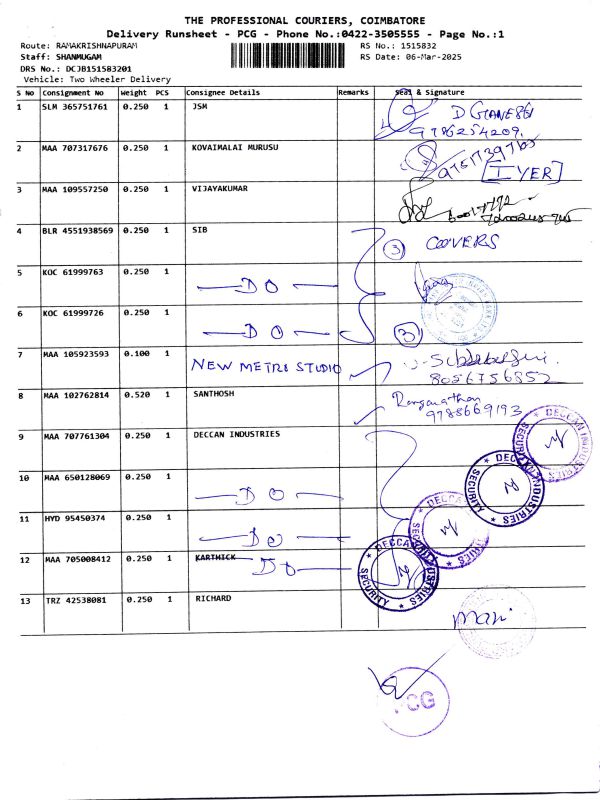 THE PROFESSIONAL COURIERS, COIMBATORE
Delivery Runsheet - PCG - Phone No.:0422-3505555 - Page No.:1
Route: RAMAKRISHNAPURAM RS No.: 1515832
Staff: SHANMUGAM RS Date: 06-Mar-2025
DRS No.: DCJB151583201
Vehicle: Two Wheeler Delivery
S No Consignment No Weight PCS Consignee Details Remarks Seal & Signature
1 SLM 365751761 0.250 1 JSM D GANESH
9786254209.
2 MAA 707317676 0.250 1 KOVAIMALAI MURUSU
[IYER]
3 MAA 109557250 0.250 1 VIJAYAKUMAR
4 BLR 4551938569 0.250 1 SIB 3 COVERS
5 KOC 61999763 0.250 1 — DO —
6 KOC 61999726 0.250 1 — DO — 3
7 MAA 105923593 0.100 1 NEW METRO STUDIO
8056756852
8 MAA 102762814 0.520 1 SANTHOSH Ranganathan
9788669193
9 MAA 707761304 0.250 1 DECCAN INDUSTRIES
DECCAN INDUSTRIES SECURITY
10 MAA 650128069 0.250 1 — DO —
DECCAN INDUSTRIES SECURITY
11 HYD 95450374 0.250 1 — DO —
DECCAN INDUSTRIES SECURITY
12 MAA 705008412 0.250 1 KARTHICK — DO —
DECCAN INDUSTRIES SECURITY
13 TRZ 42538081 0.250 1 RICHARD
Mani
PCG